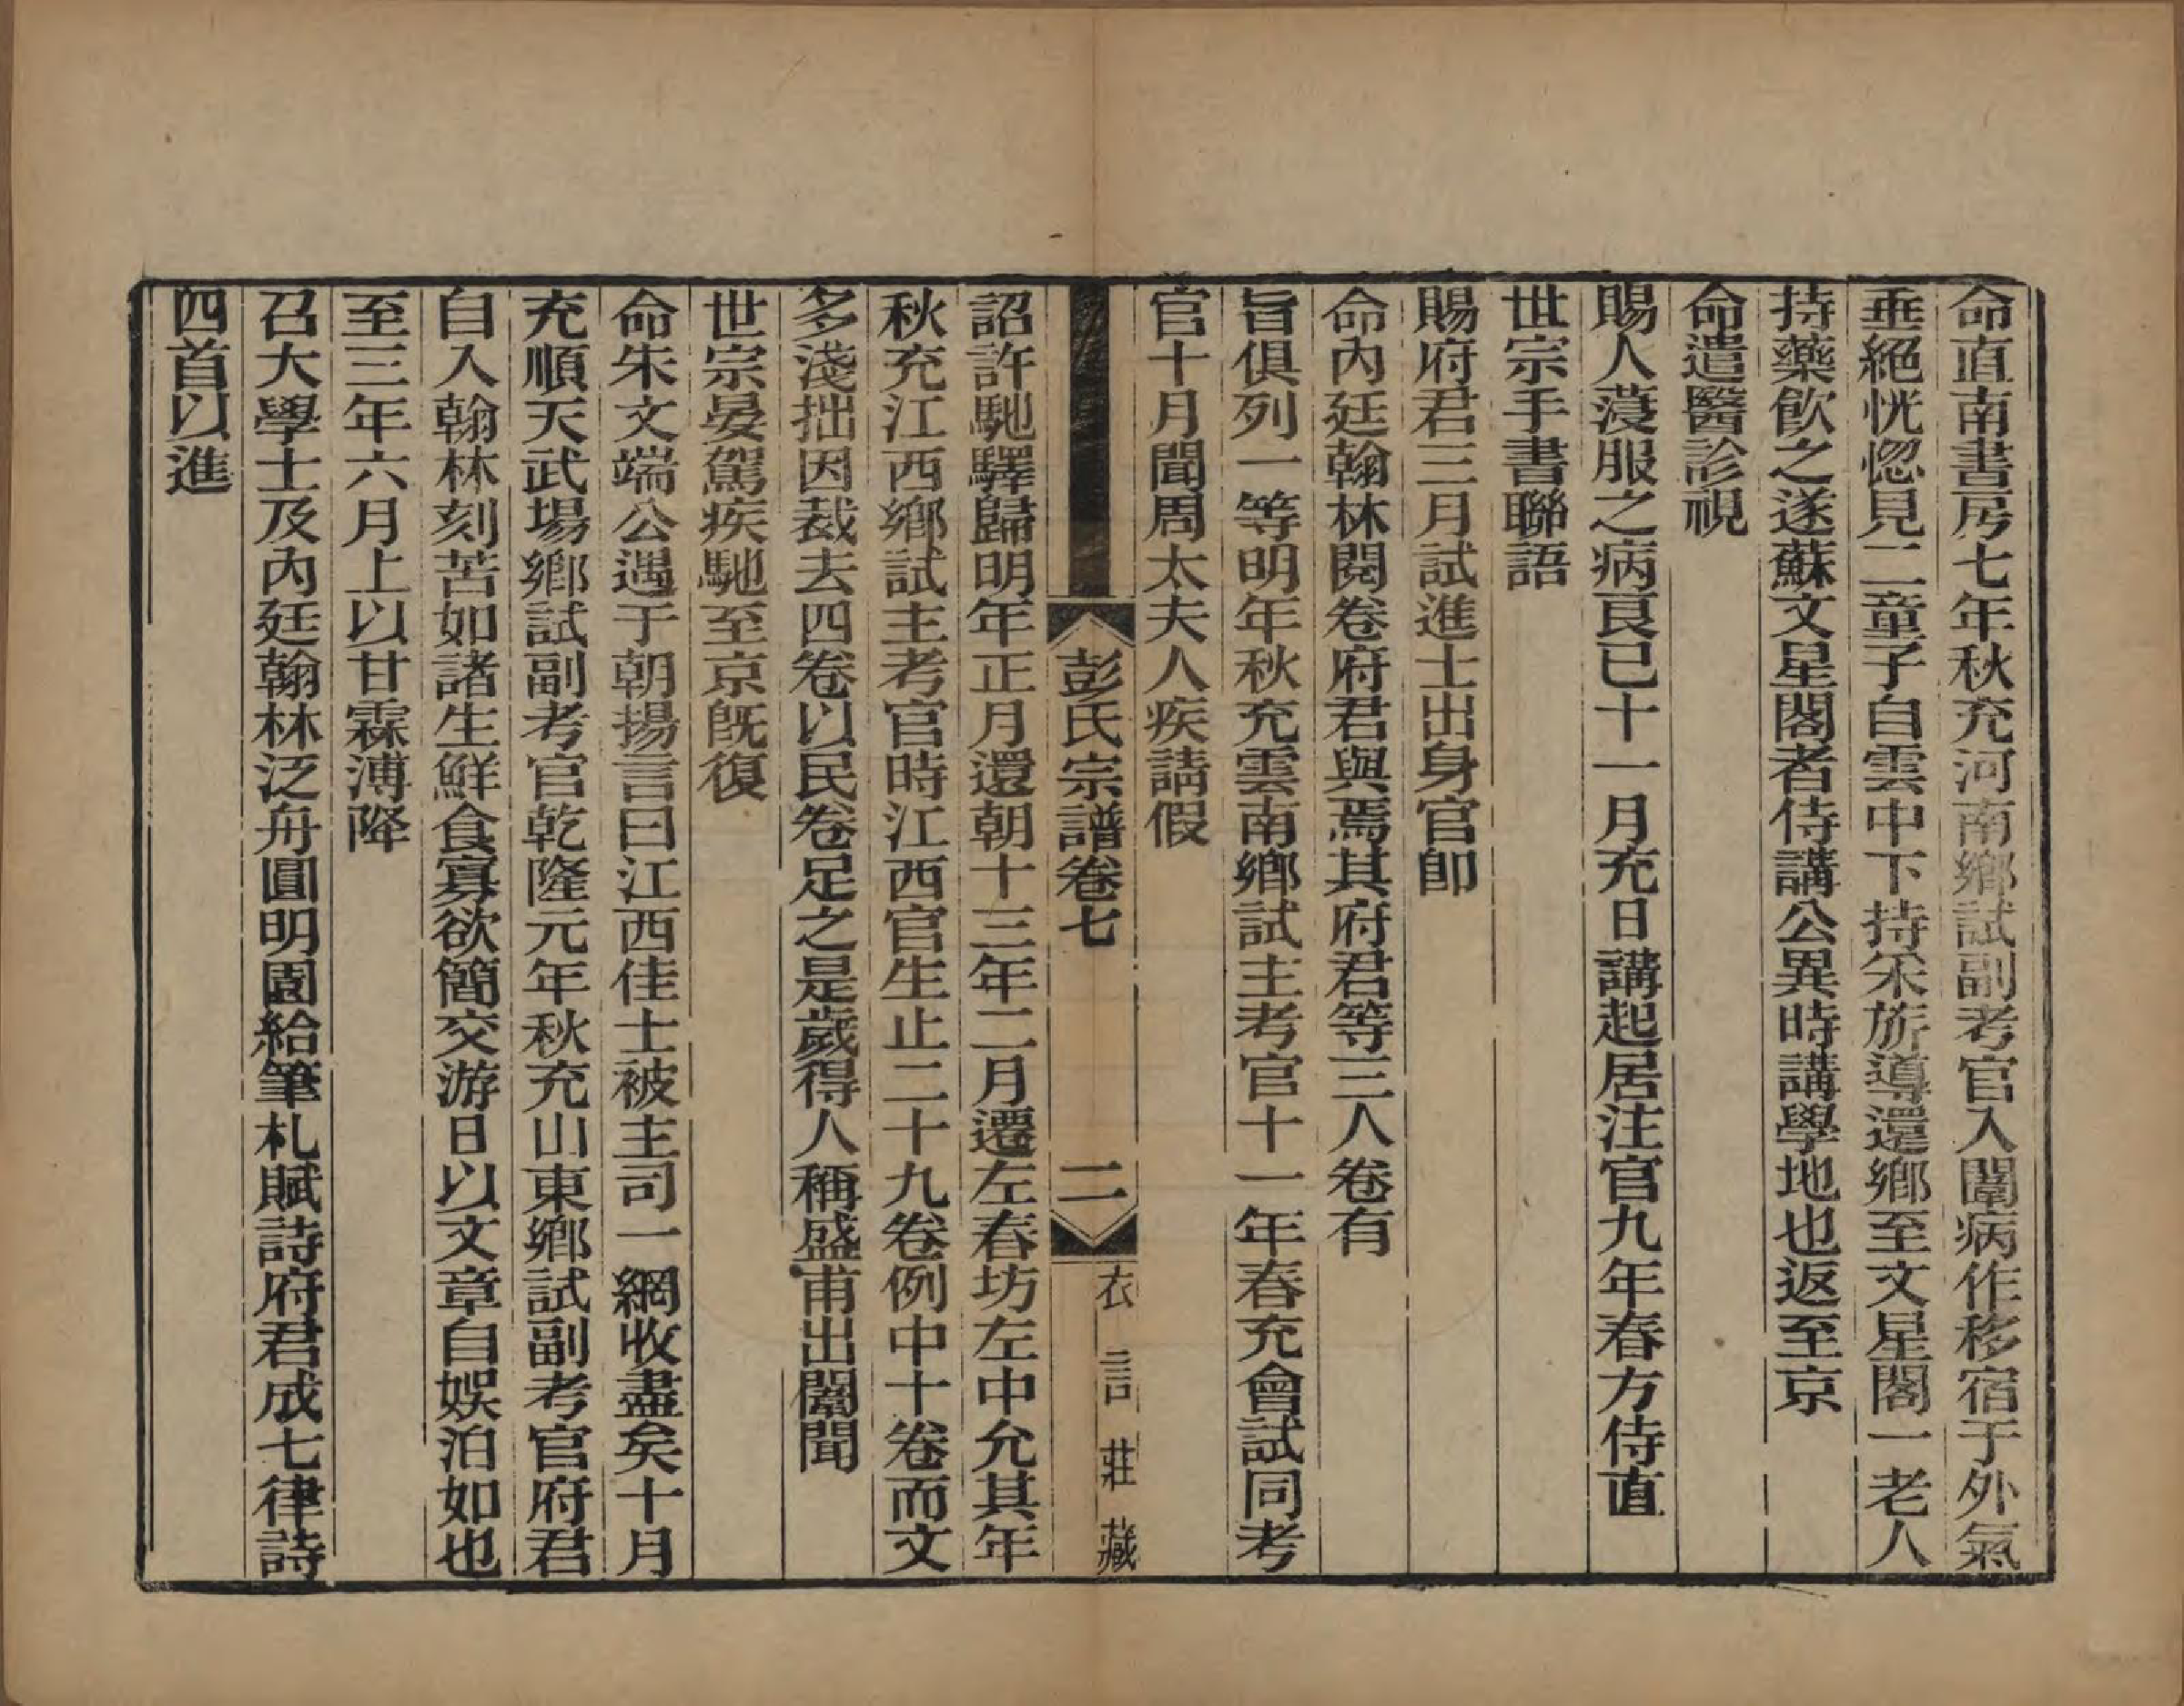 命直南書房七年秋充河南鄉試副考官入闈病作移宿于外氣
垂絕恍惚見二童子自雲中下持朱旂導還鄉至文星閣一老人
持藥飲之遂蘇文星閣者侍講公異時講學地也返至京
命遣醫診視
賜人葠服之病良已十一月充日講起居注官九年春方侍直
世宗手書聯語
賜府君三月試進士出身官卽
命內廷翰林閱卷府君與焉其府君等三人卷有
旨俱列一等明年秋充雲南鄉試主考官十一年春充會試同考
官十月聞周太夫人疾請假
彭氏宗譜卷七 二 衣言莊藏
詔許馳驛歸明年正月還朝十三年二月遷左春坊左中允其年
秋充江西鄉試主考官時江西官生止二十九卷例中十卷而文
多淺拙因裁去四卷以民卷足之是歲得人稱盛甫出闈聞
世宗晏駕疾馳至京旣復
命朱文端公遇于朝揚言曰江西佳士被主司一網收盡矣十月
充順天武場鄉試副考官乾隆元年秋充山東鄉試副考官府君
自入翰林刻苦如諸生鮮食寡欲簡交游日以文章自娛泊如也
至三年六月上以甘霖溥降
召大學士及內廷翰林泛舟圓明園給筆札賦詩府君成七律詩
四首以進